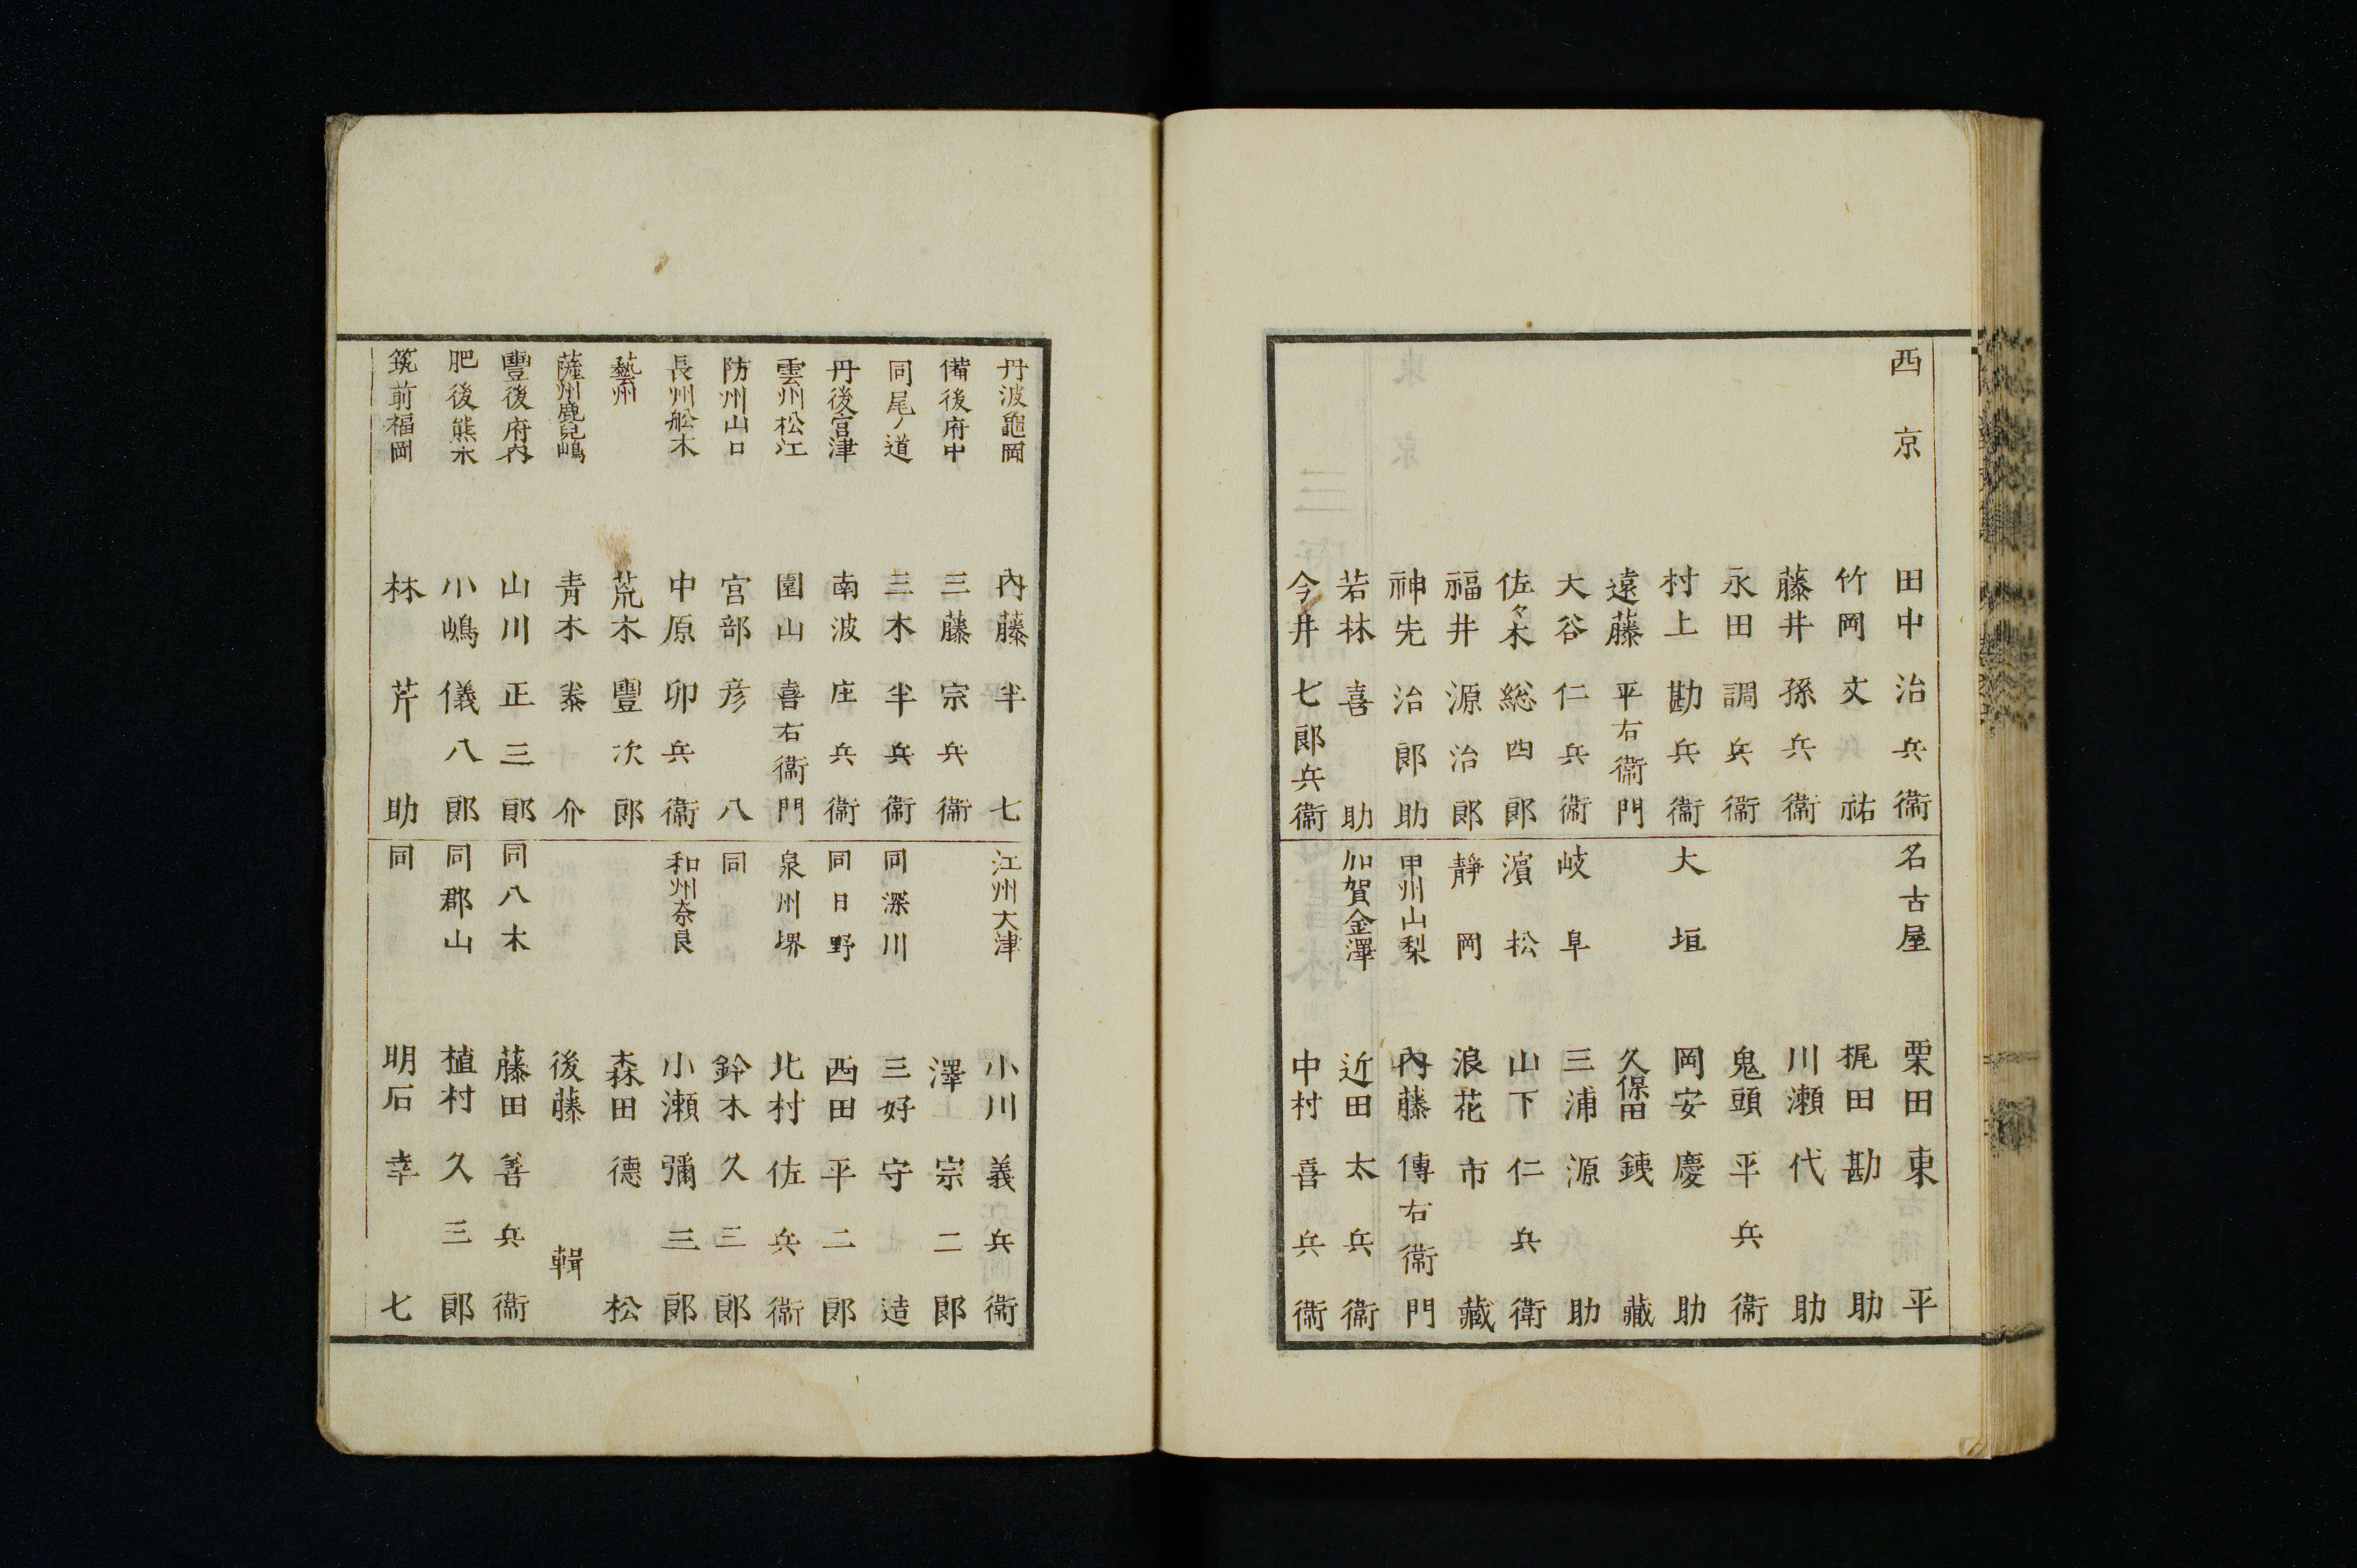 西京
田中治兵衞
竹岡文祐
藤井孫兵衞
永田調兵衞
村上勘兵衞
遠藤平右衞門
大谷仁兵衞
佐々木総四郎
福井源治郎
神先治郎助
若林喜助
今井七郎兵衞
名古屋
栗田東平
梶田勘助
川瀬代助
鬼頭平兵衞
大垣
岡安慶助
久保田銕藏
岐阜
三浦源助
濵松
山下仁兵衛
靜岡
浪花市藏
甲州山梨
內藤傳右衞門
加賀金澤
近田太兵衞
中村喜兵衞
丹波龜岡
內藤半七
備後府中
三藤宗兵衞
同尾ノ道
三木半兵衞
丹後宮津
南波庄兵衞
雲州松江
園山喜右衞門
防州山口
宮部彦八
長州舩木
中原卯兵衞
藝州
荒木豐次郎
薩州鹿兒嶋
青木泰介
豐後府內
山川正三郎
肥後熊本
小嶋儀八郎
筑前福岡
林芹助
江州大津
小川義兵衞
澤宗二郎
同深川
三好守造
同日野
西田平二郎
泉州堺
北村佐兵衞
同
鈴木久三郎
和州奈良
小瀬彌三郎
森田德松
後藤輯
同八木
藤田善兵衞
同郡山
植村久三郎
同
明石幸七